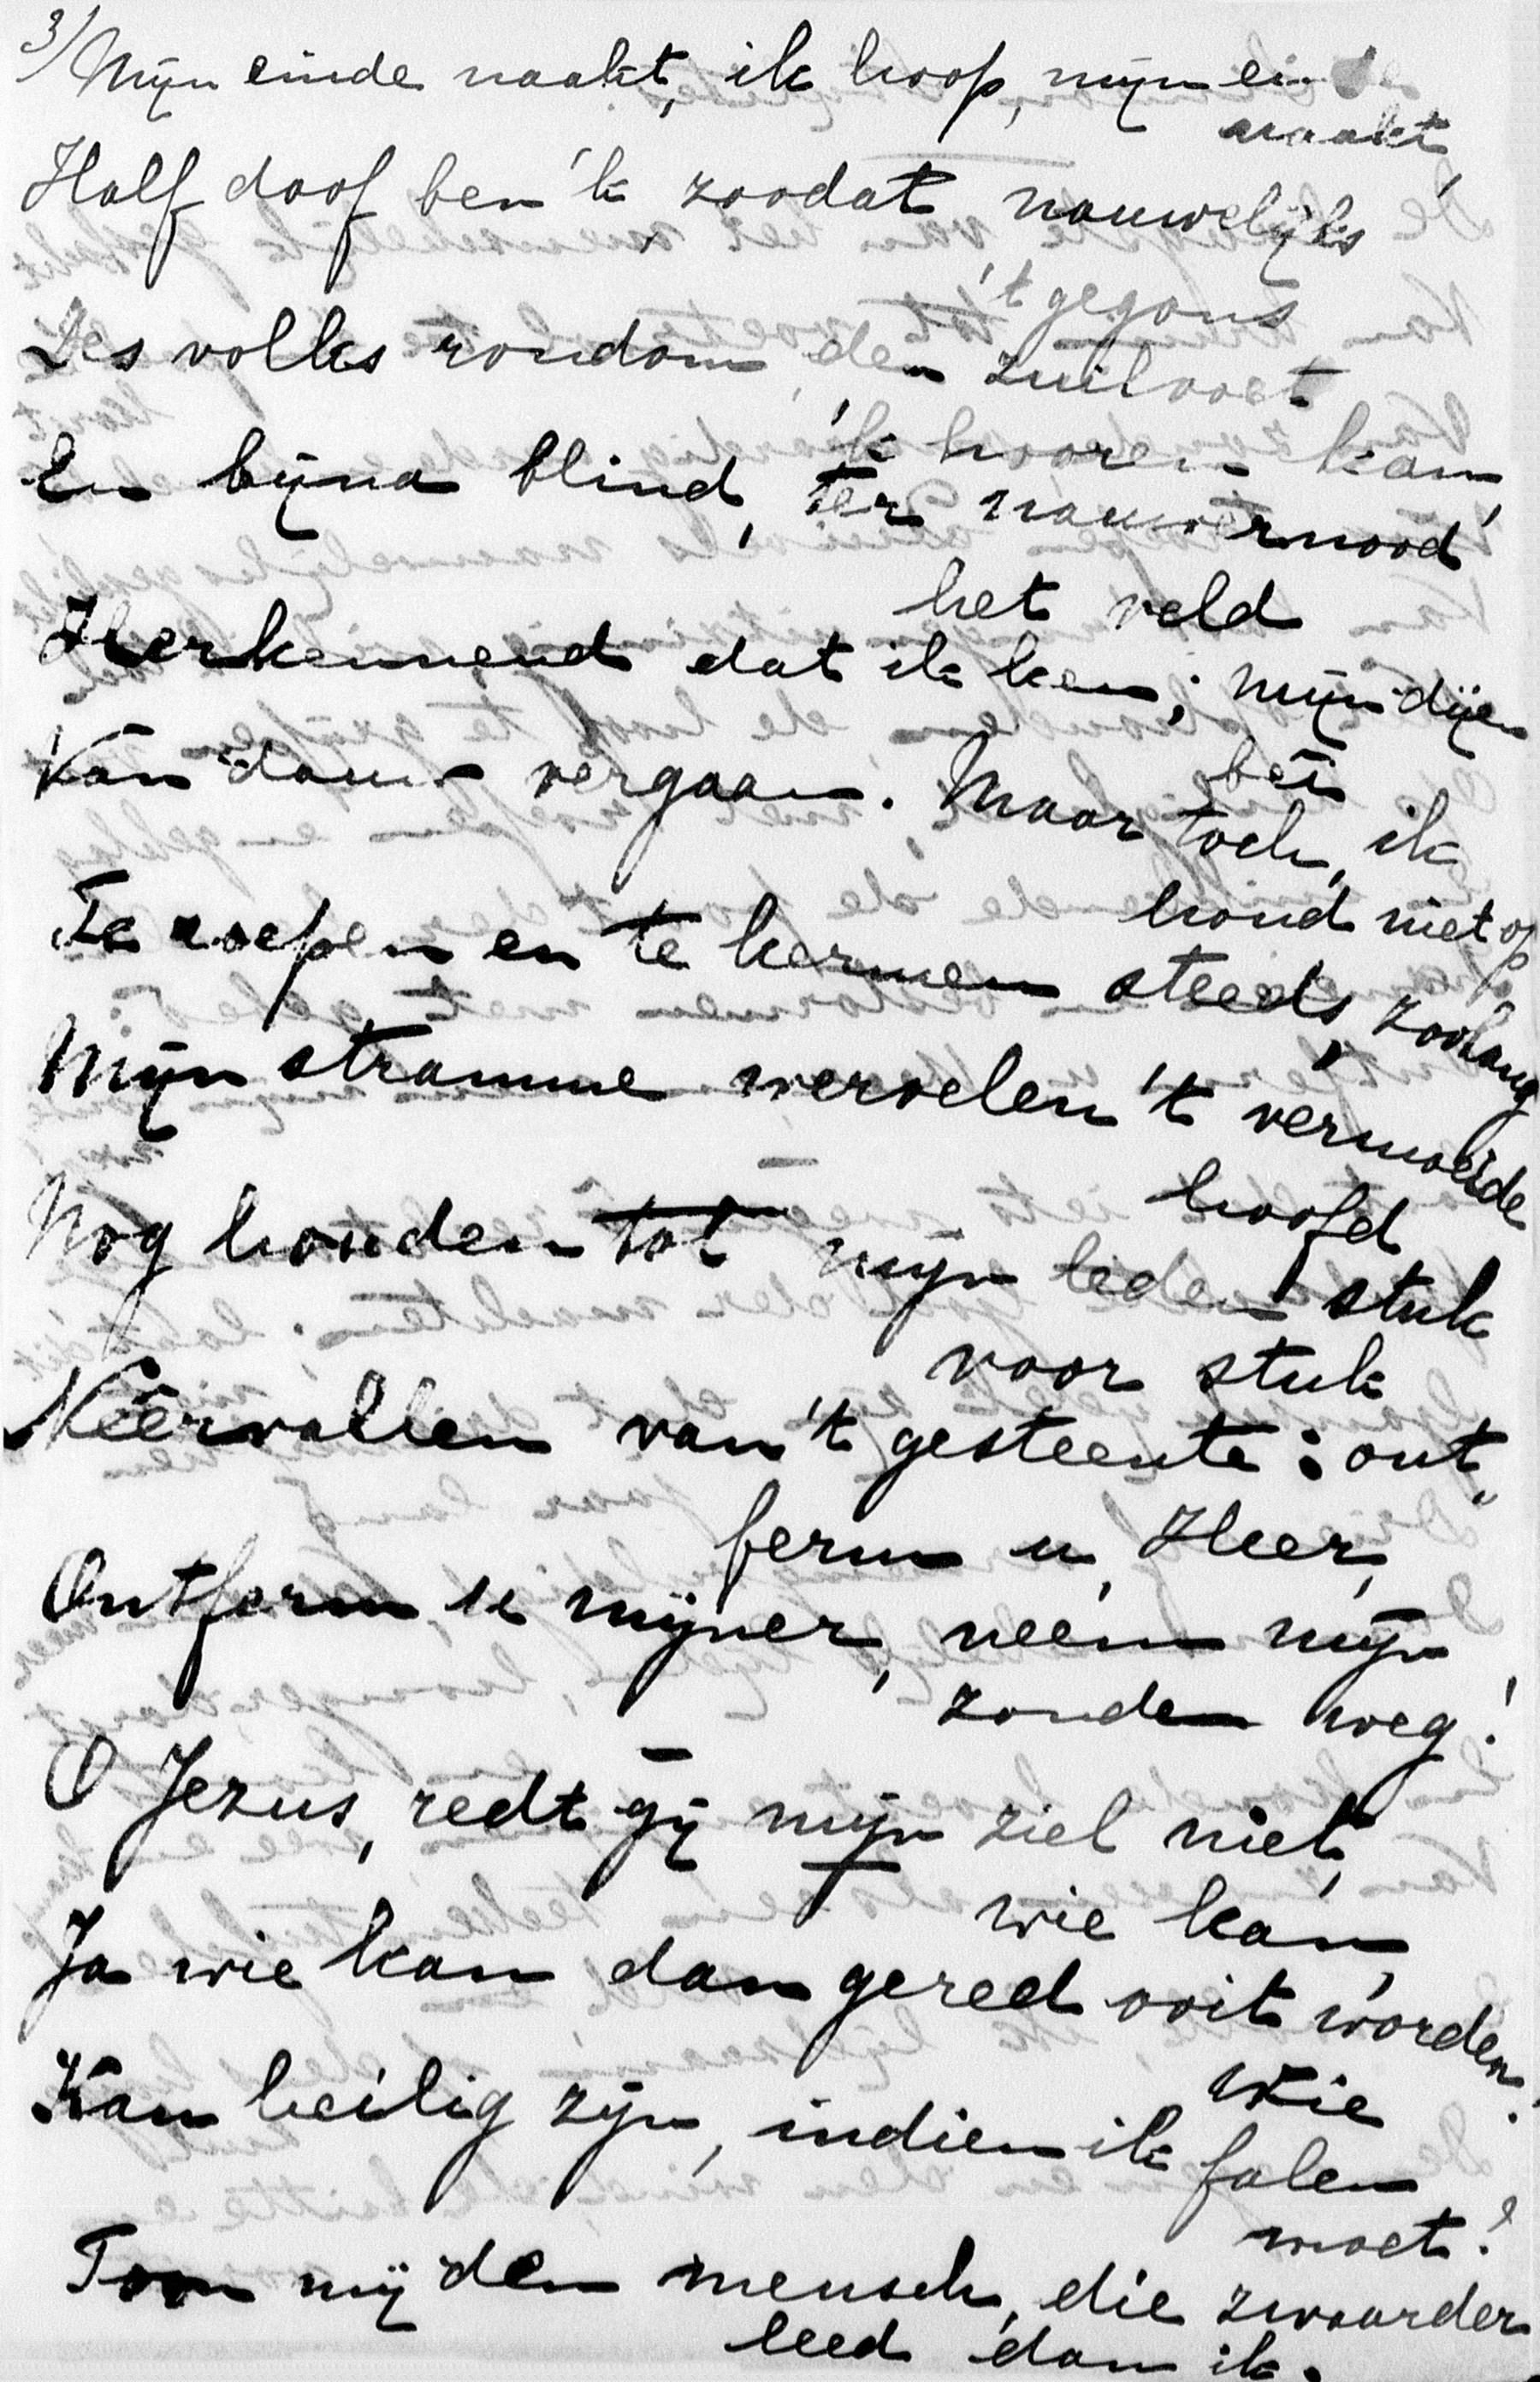 3/ Mijn einde naakt, ik hoop, mijn einde
naakt,
Half doof ben 'k zoodat nauwelijks
't gegons
Des volks rondom den zuilvoet
'k hooren kan,
En bijna blind, ter nauwernood
het veld
Herkennend dat ik ken; mijn dijen
beî
Van dauw vergaan. Maar toch, ik
houd niet op
Te roepen en te kermen steeds, zoolang
Mijn stramme wervelen 't vermoeide
hoofd
Nog houden tot mijn leden stuk
voor stuk
Neêrvallen van 't gesteente: ont„
ferm u, Heer,
Ontferm u mijner, neem mijn
zonden weg!
O Jezus, redt gij mijn ziel niet,
wie kan,
Ja wie kan dan gered ooit worden?
Wie
Kan heilig zijn, indien ik falen
moet?
Toon mij den mensch, die zwaarder
leed dan ik.